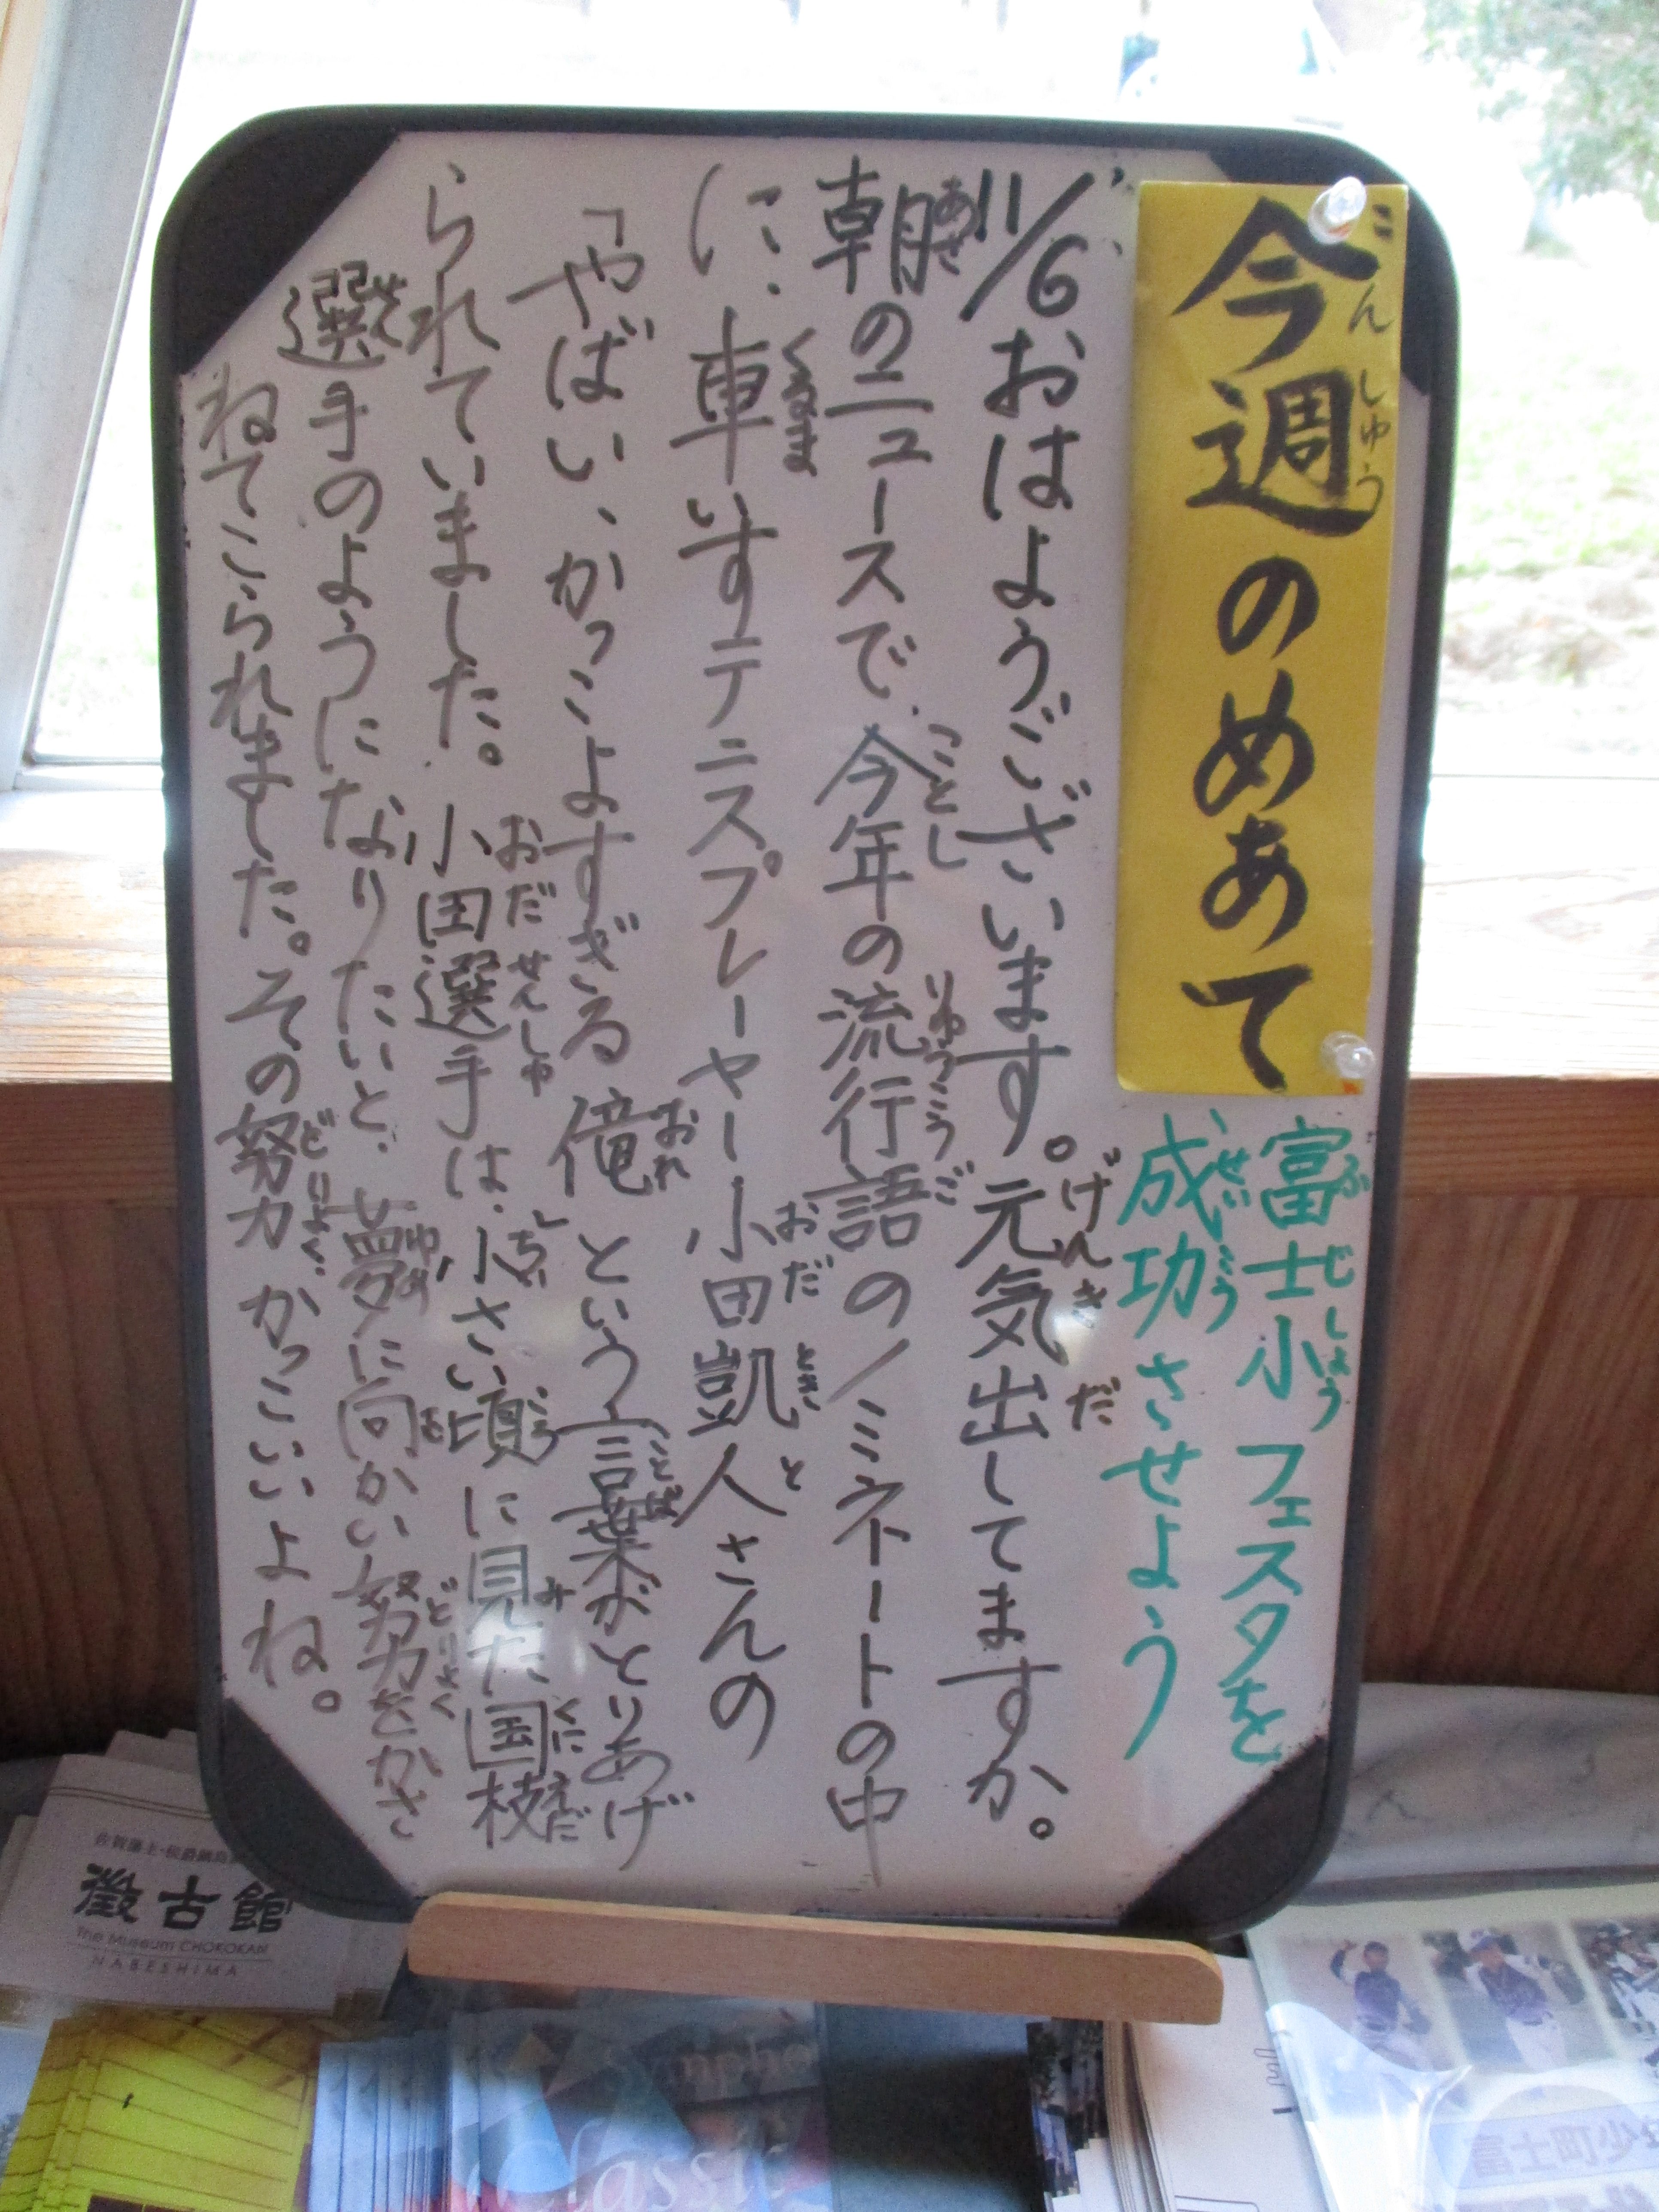 今週のめあて
富士小フェスタを
成功させよう
11/6 おはようございます。元気出してますか。
朝のニュースで、今年の流行語のノミネートの中
に、車いすテニスプレーヤー小田凱人さんの
「やばい、かっこよすぎる俺」という言葉がとりあげ
られていました。小田選手は、小さい頃に見た国枝
選手のようになりたいと、夢に向かい努力をかさ
ねてこられました。その努力、かっこいいよね。
徴古館
The Museum CHOKOKAN
NABESHIMA
Classic
富士町少年